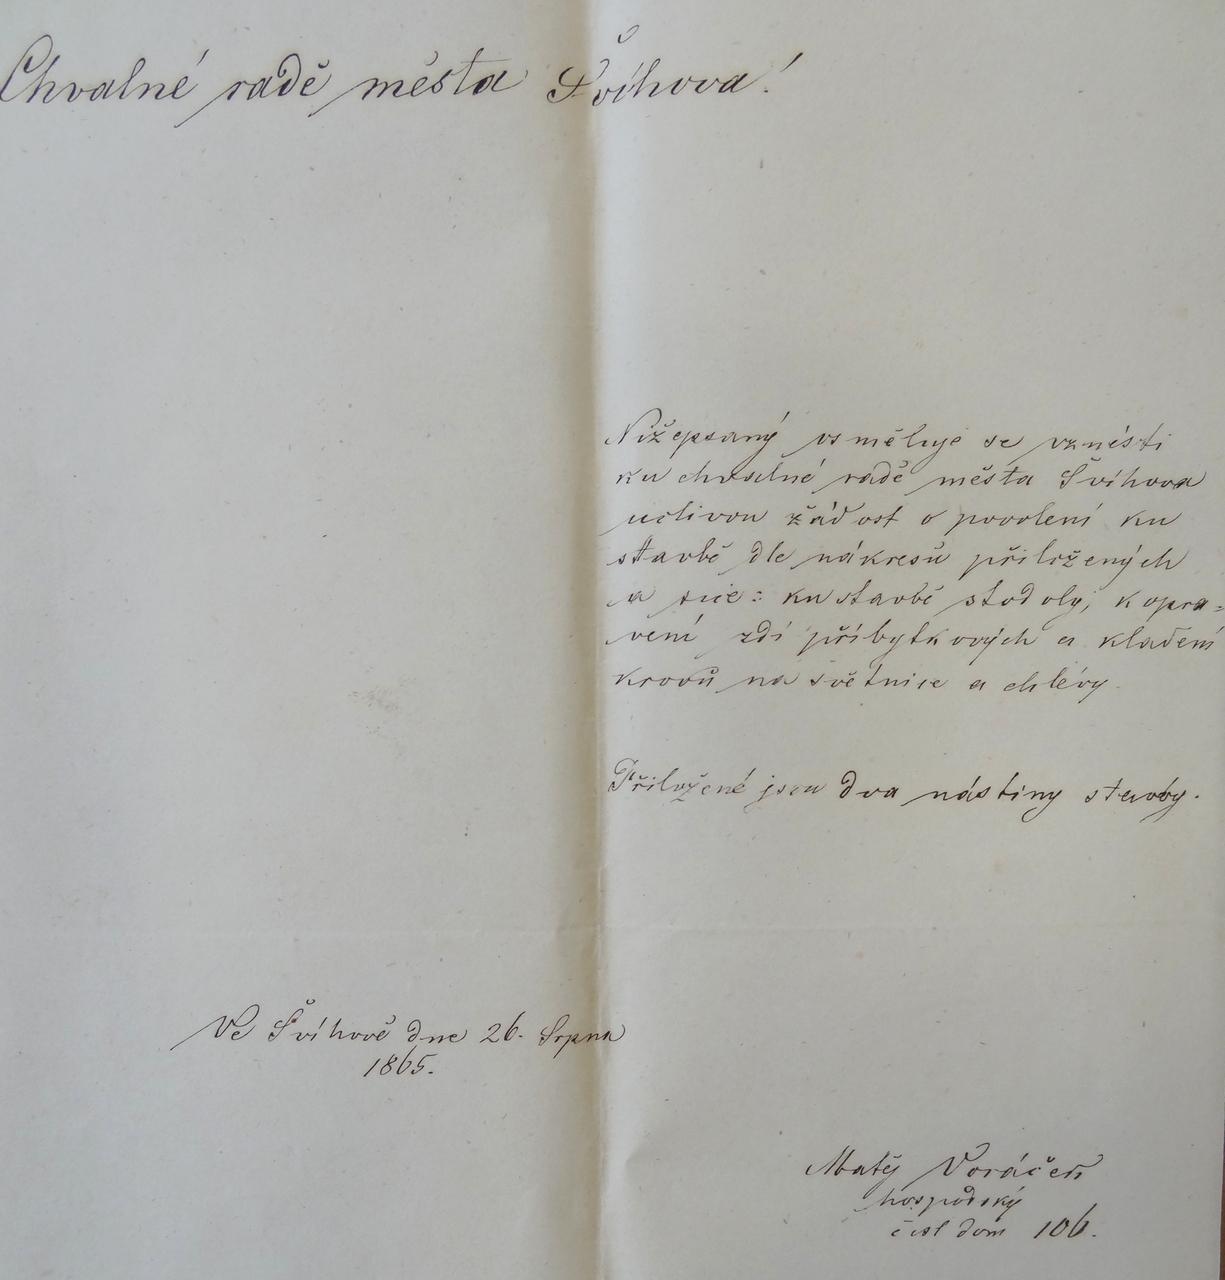 Chvalné radě města Švíhova!
Nížepsaný osměluje se vznésti
ku chvalné radě města Švíhova
uctivou žádost o povolení ku
stavbě dle nákresů přiložených
a sice: ku stavbě stodoly, k opra=
vení zdí příbytkových a kladení
krovů na světnice a chlévy.
Přiložené jsou dva nástiny stavby.
Ve Švíhově dne 26. Srpna
1865.
Matěj Voráček
hospodský
čísl dom 106.